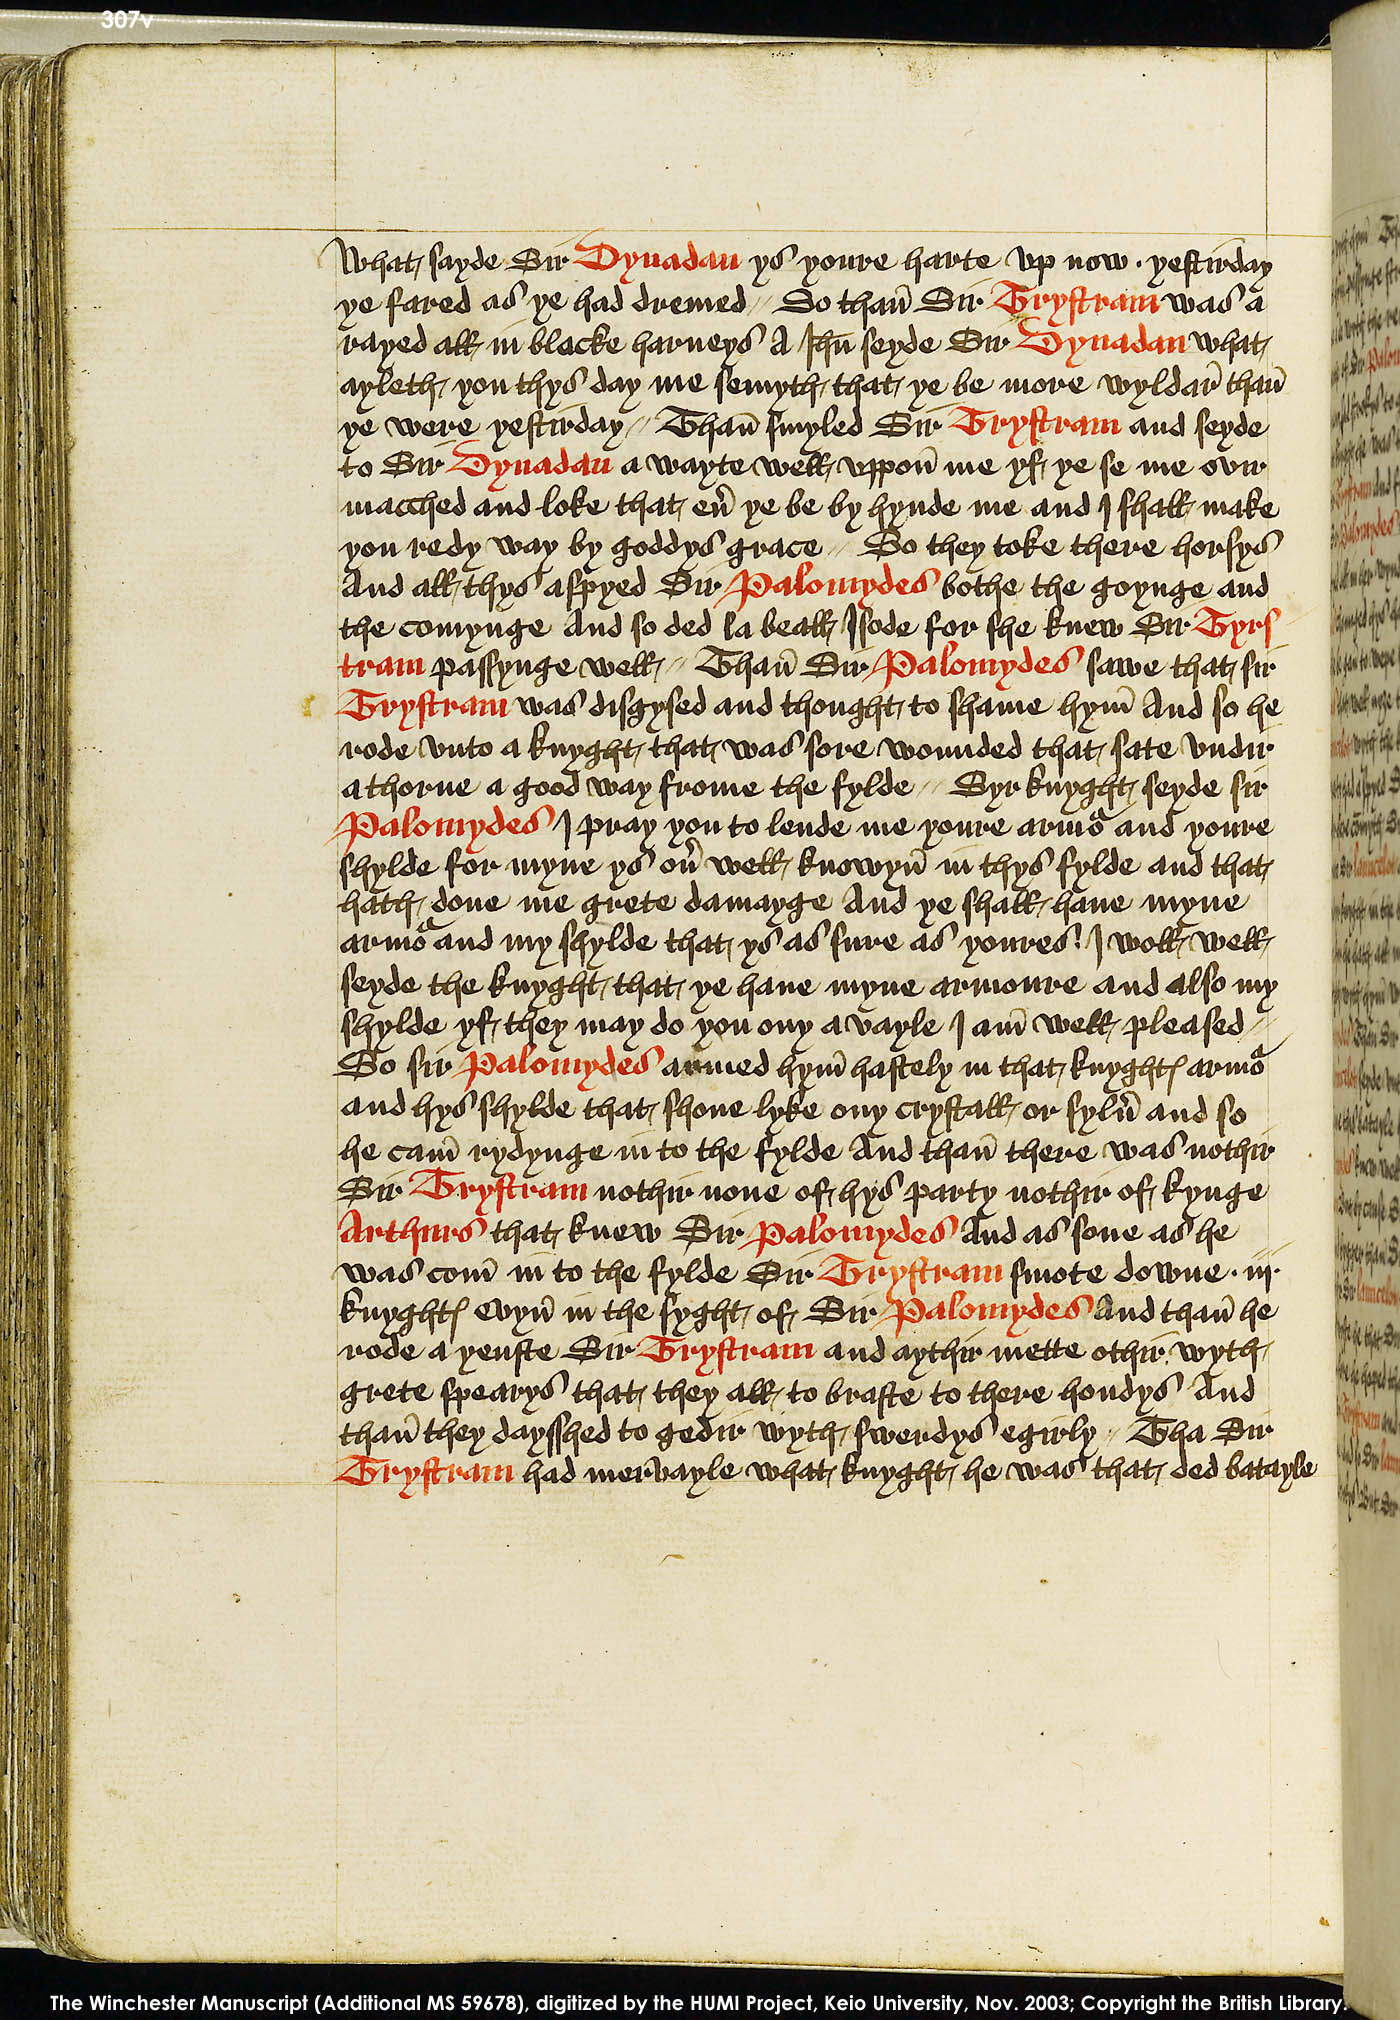 307v
What sayde Sir Dynadan ys youre harte vp now · yestirday
ye fared as ye had dremed // So than̄ Sir Trystram was a
rayed all in blacke harneys A Ihū seyde Sir Dynadan what
ayleth you thys day me semyth that ye be more wyldar̄ than̄
ye were yestirday // Than̄ smyled Sir Trystram and seyde
to Sir Dynadan a wayte well vppon̄ me yf ye se me ovir
macched and loke that eū ye be by hynde me and I shall make
you redy way by goddys grace // So they toke there horsys
And all thys aspyed Sir Palomydes bothe the goynge and
the comynge And so ded la beall Isode for she knew Sir Tyrs
tram passynge well // Than̄ Sir Palomydes sawe that sir
Trystram was disgysed and thought to shame hym̄ And so he
rode vnto a knyght that was sore wounded that sate vndir
a thorne a good way frome the fylde // Syr knyght seyde sir
Palomydes I pray you to lende me youre armoᵃ and youre
shylde for myne ys oū well knowyn̄ in thys fylde and that
hath done me grete damayge And ye shall haue myne
armoᵃ and my shylde that ys as sure as youres ! I woll well
seyde the knyght that ye haue myne armoure and also my
shylde yf they may do you ony a vayle I am̄ well pleased //
So sir Palomydes armed hym̄ hastely in that knyghtꝭ armoᵃ
and hys shylde that shone lyke ony crystall or sylū and so
he cam̄ rydynge in to the fylde And than̄ there was nothir
Sir Trystram nothir none of hys party nothir of kynge
Arthurs that knew Sir Palomydes And as sone as he
was com̄ in to the fylde Sir Trystram smote downe · iij ·
knyghtꝭ evyn̄ in the syght of Sir Palomydes And than̄ he
rode a yenste Sir Trystram and aythir mette othir wyth
grete spearys that they all to braste to there hondys And
than̄ they daysshed to gedir wyth swerdys egirly // Tha Sir
Trystram had mervayle what knyght he was that ded batayle
The Winchester Manuscript (Additional MS 59678), digitized by the HUMI Project, Keio University, Nov. 2003; Copyright the British Library.